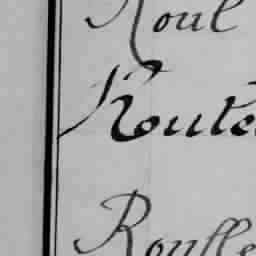 Roul
Roule
Rousse